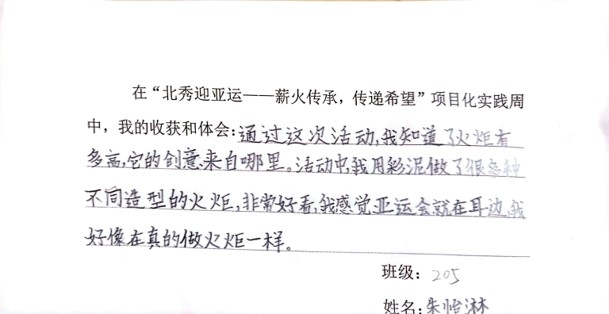 在“北秀迎亚运——薪火传承，传递希望”项目化实践周
中，我的收获和体会：通过这次活动，我知道了火炬有
多高，它的创意来自哪里。活动中，我用彩泥做了很多种
不同造型的火炬，非常好看，我感觉亚运会就在耳边，我
好像在真的做火炬一样。
班级：205
姓名：朱怡淋